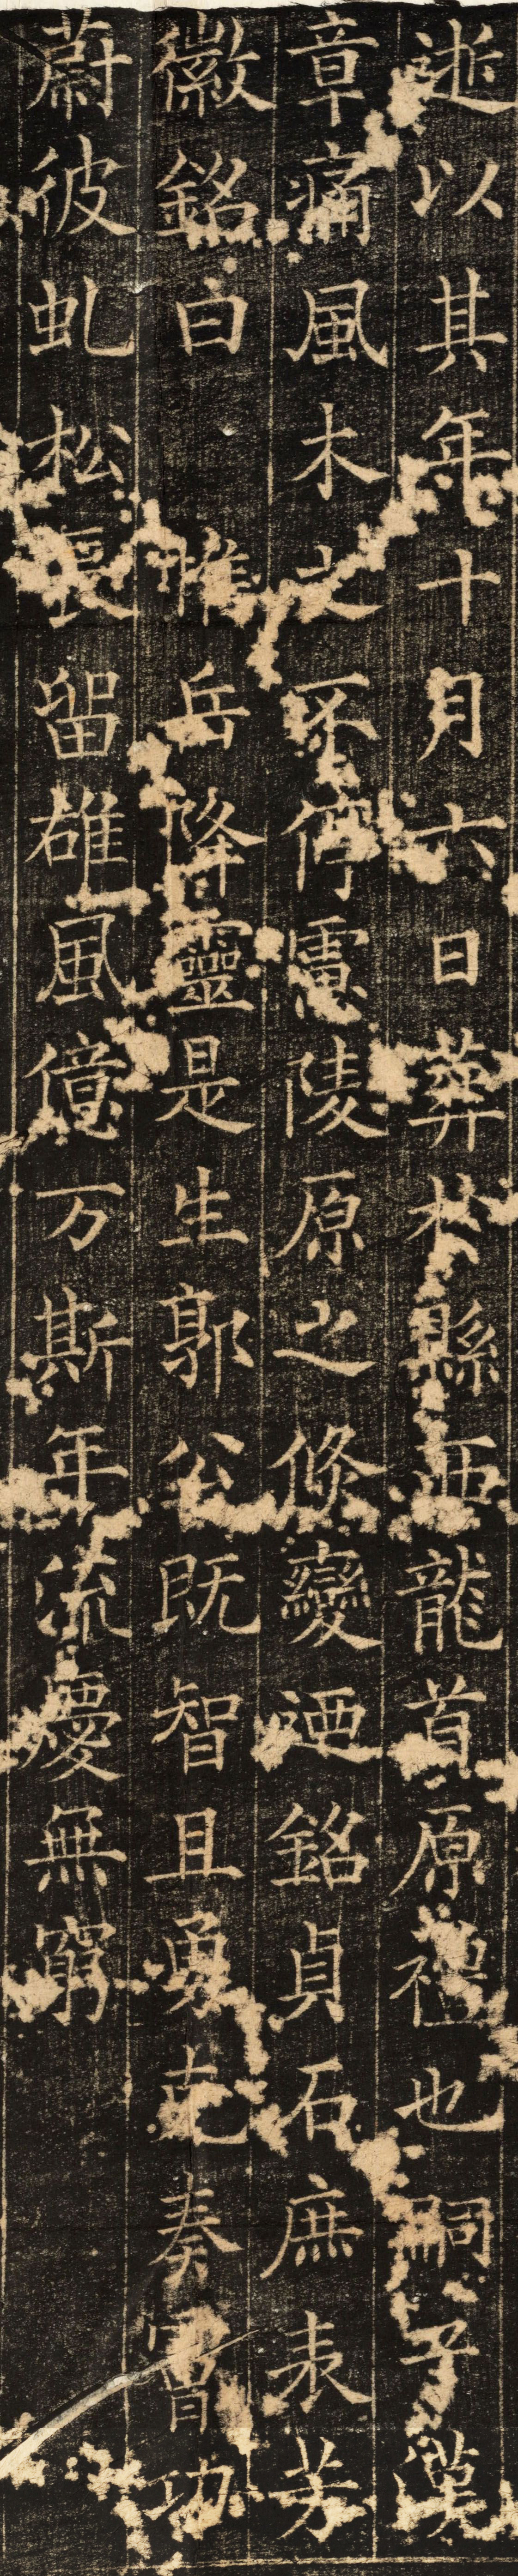 逝以其年十月六日葬於縣西龍首原禮也嗣子漢
章痛風木之不停慮陵原之倏變迺銘貞石庶表芳
徽銘曰 惟岳降靈是生郭公既智且勇克奏膚功
蔚彼虬松長留雄風億万斯年流慶無窮